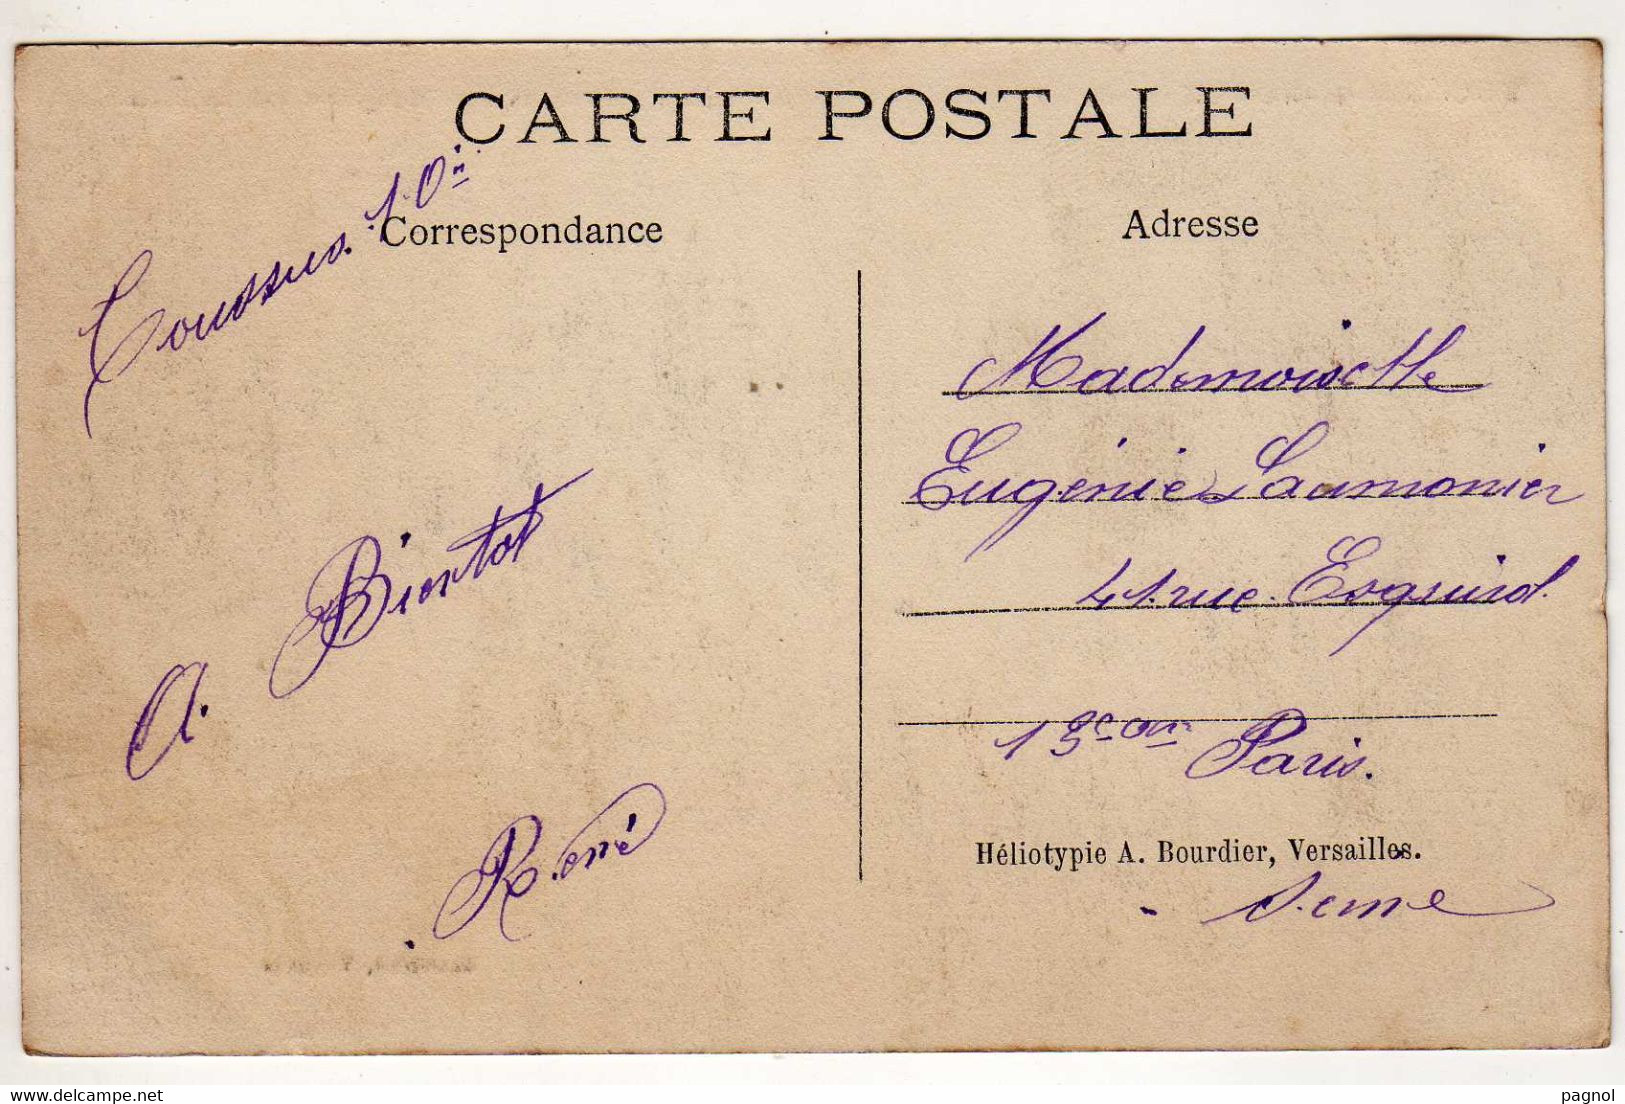 CARTE POSTALE
Correspondance
Adresse
Toussus. 10
A Bientot
René
Mademoiselle
Eugénie Laumonier
41. rue. Esquirol.
13e arr Paris.
Héliotypie A. Bourdier, Versailles.
- Seine
www.delcampe.net
pagnol